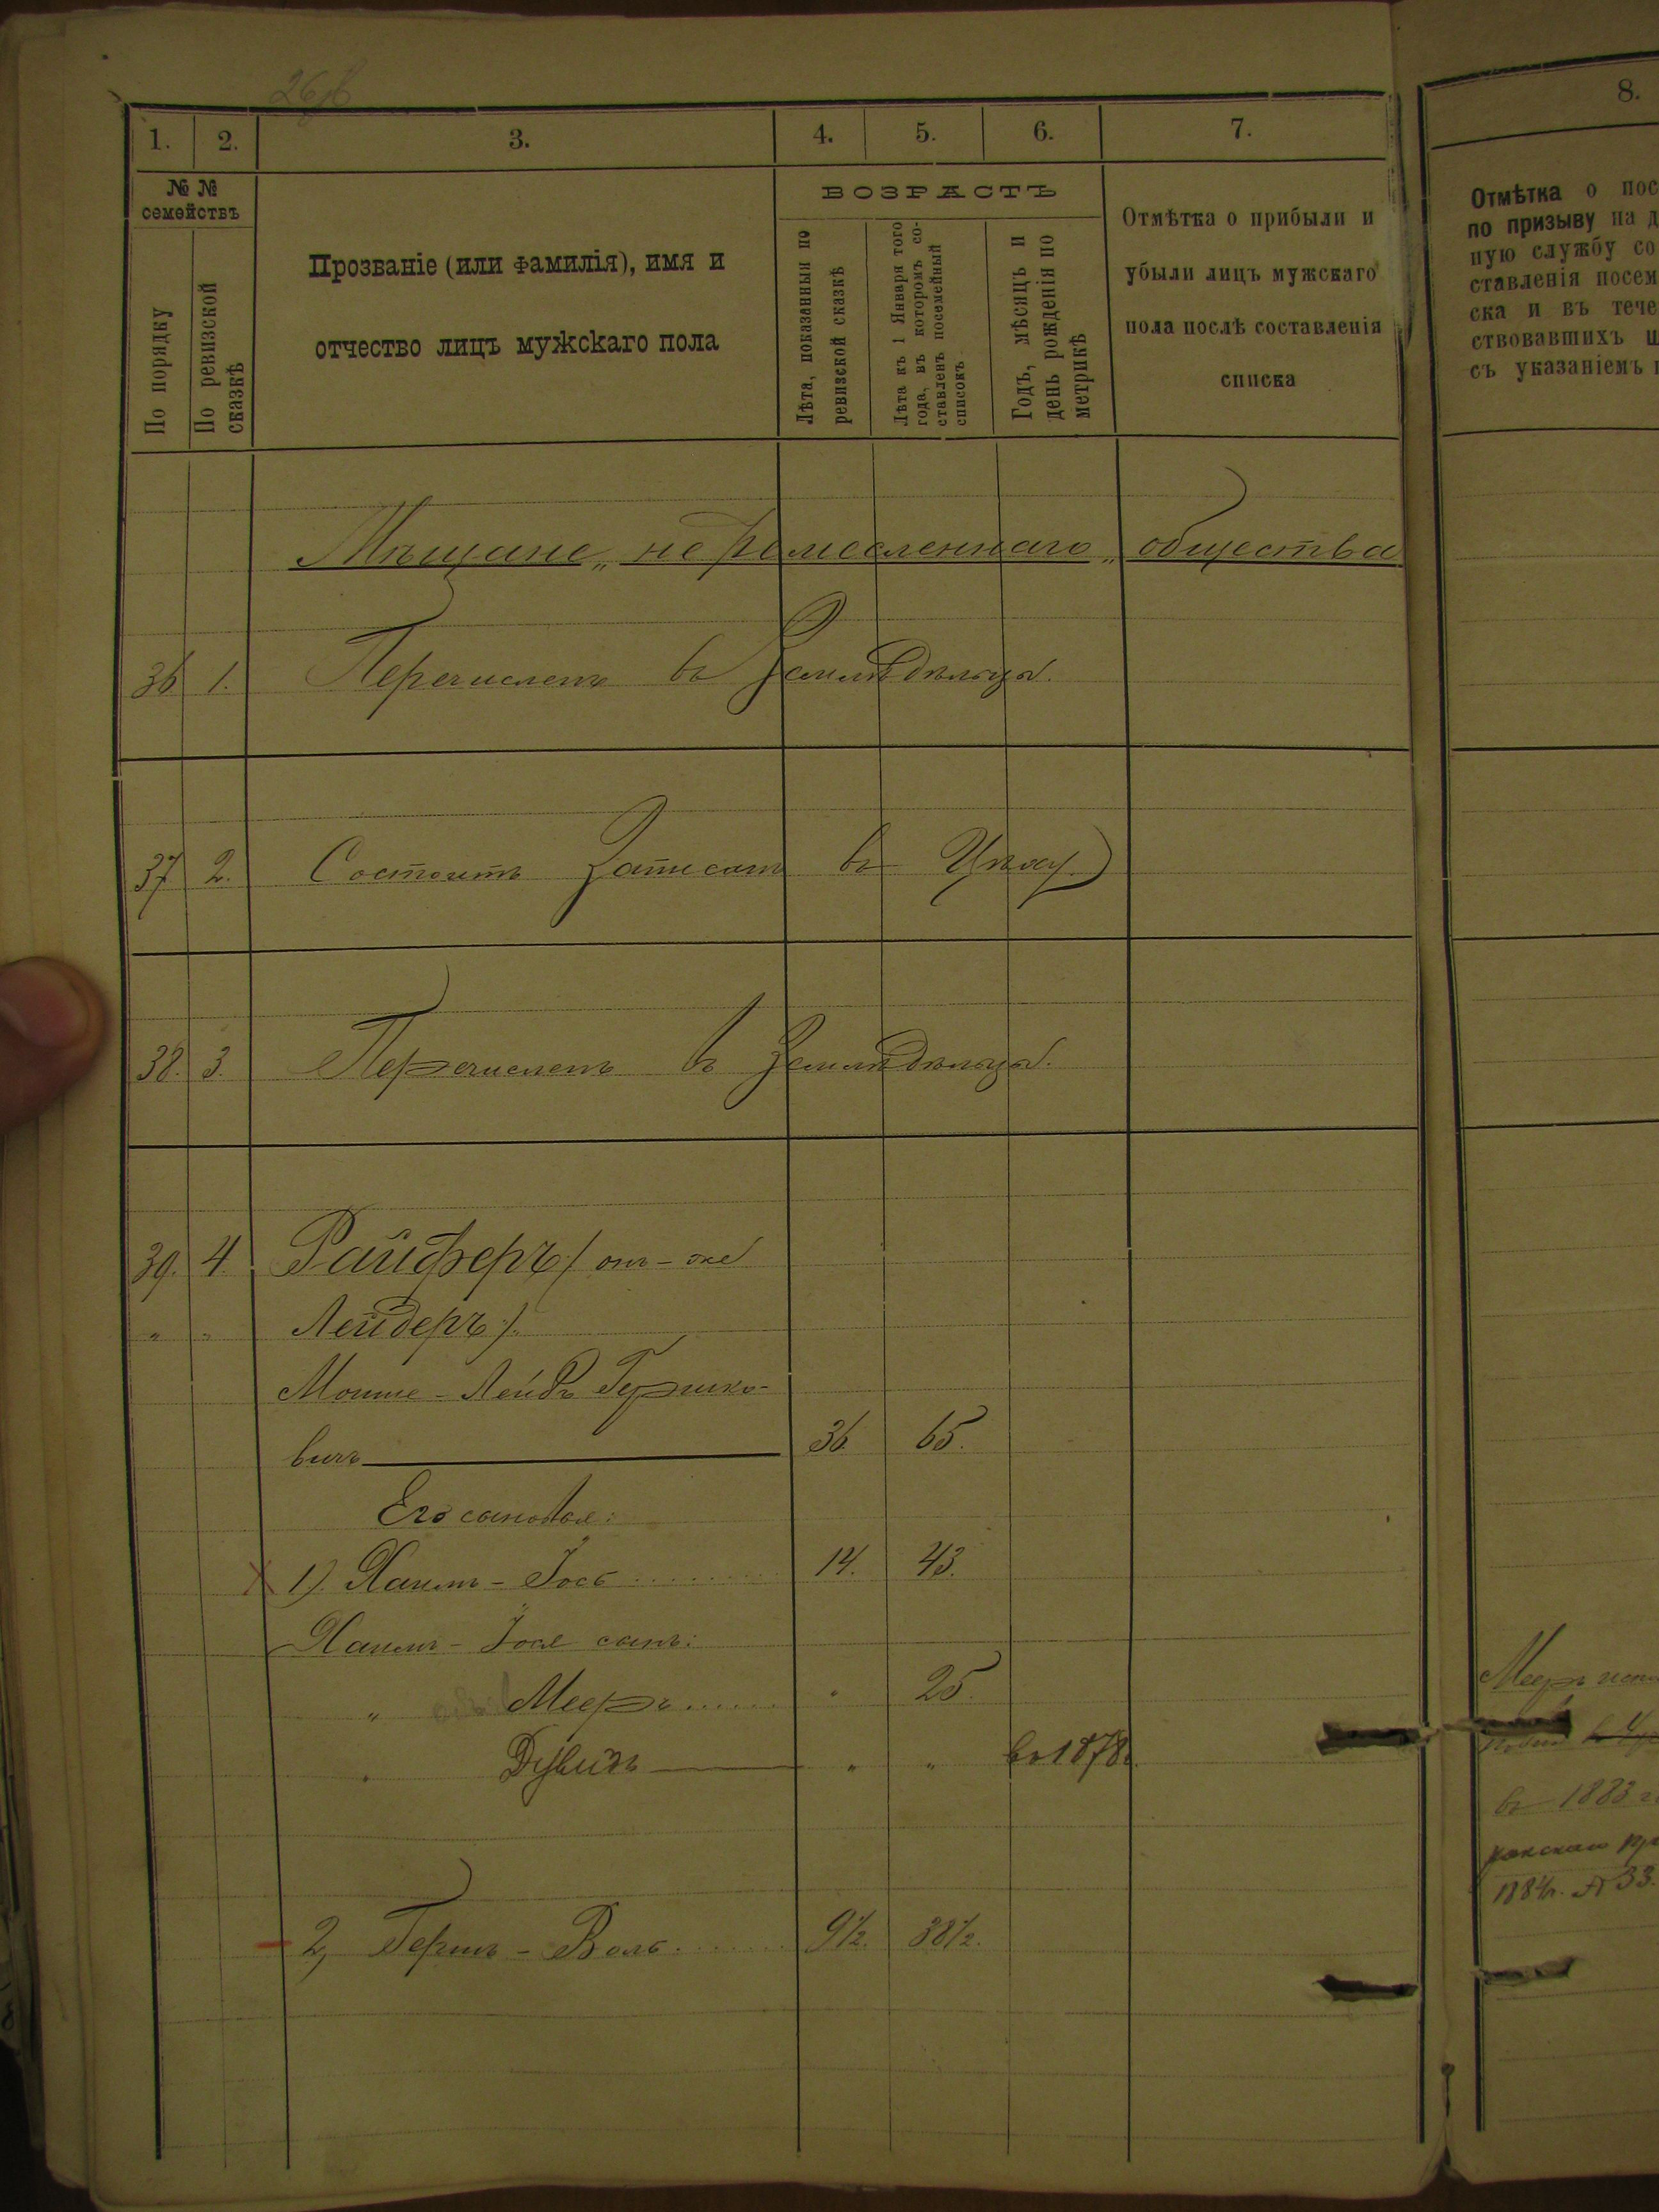 1. 2. 3. 4. 5. 6. 7. 8.
№ №
семействъ
По порядку
По ревизской
сказкѣ
Прозваніе (или фамилія), имя и
отчество лицъ мужскаго пола
ВОЗРАСТЪ
Лѣта, показанныя по
ревизской сказкѣ
Лѣта къ 1 Января того
года, въ которомъ со-
ставленъ посемейный
списокъ
Годъ, мѣсяцъ и
день рожденія по
метрикѣ
Отмѣтка о прибыли и
убыли лицъ мужскаго
пола послѣ составленія
списка
Отмѣтка о пос
по призыву на д
ную службу со
ставленія посем
ска и въ тече
ствовавшихъ
съ указаніемъ
Мѣщане „не ремесленнаго„ общества
36 1. Перечисленъ въ Земледѣльцы.
37 2. Состоитъ Записанъ въ
38. 3. Перечисленъ въ Земледѣльцы.
39. 4. Райферъ /: онъ-же
„ „ Лейдеръ:/.
Мошке-Лейбъ Гершко-
вичъ 36 65.
Его сыновья:
1). Хаимъ-Іось 14. 43.
Хаимъ-Іося сынъ:
„ Мееръ „ 25.
„ Дувидъ „ „ въ 1878г.
2, Гершъ-Воль 9½. 38½.
Мееръ
въ 1883 г
1884г. № 33.